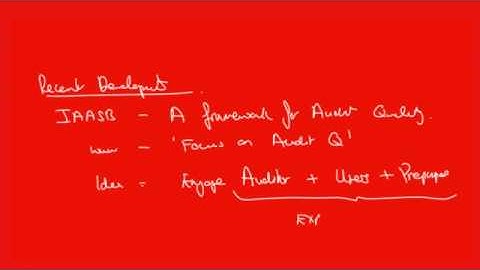 Recent Developmts
IAASB - A framework for Audit Quality.
- 'Focus on Audit Q'
Idea = Engage Auditor + Users + Prepares
EXP